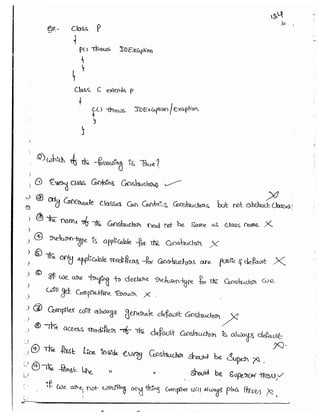 184
Ex:- class P
{
P() throws IOException
{
}
}
class C extends P
{
C() throws IOException/Exception
{
}
}
Q) which of the following is True?
① Every class Contains Constructors ✓
② only Concreate classes can Contain Constructors but not abstract classes X
③ the name of the Constructor need not be Same as class name X
④ return-type is applicable for the Constructor X
⑤ the only applicable modifiers for Constructors are public & default X
⑥ if we are trying to declare return type for the Constructor we
will get Compiletime Error X.
⑦ Compiler will always generate default Constructor X
⑧ The access modifier of the default Constructor is always default X
⑨ The first Line inside every Constructor should be Super X.
⑩ The first line " " should be Super or this ✓
if we are not writing any thing Compiler will always place this() X